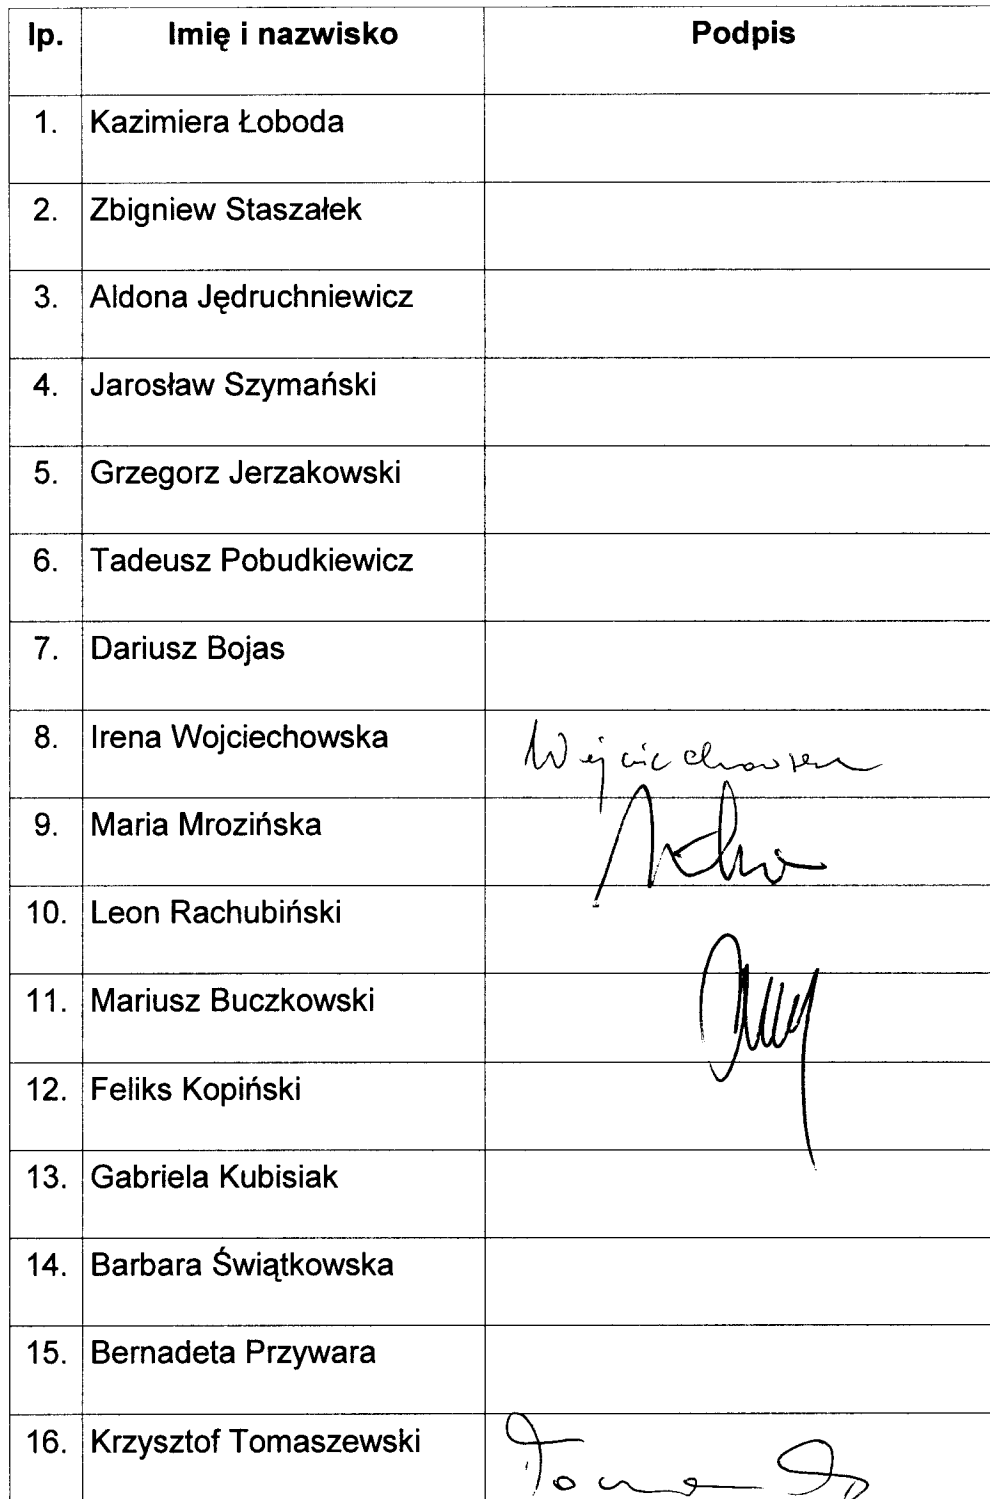 lp. Imię i nazwisko Podpis
1. Kazimiera Łoboda
2. Zbigniew Staszałek
3. Aldona Jędruchniewicz
4. Jarosław Szymański
5. Grzegorz Jerzakowski
6. Tadeusz Pobudkiewicz
7. Dariusz Bojas
8. Irena Wojciechowska
9. Maria Mrozińska
10. Leon Rachubiński
11. Mariusz Buczkowski
12. Feliks Kopiński
13. Gabriela Kubisiak
14. Barbara Świątkowska
15. Bernadeta Przywara
16. Krzysztof Tomaszewski